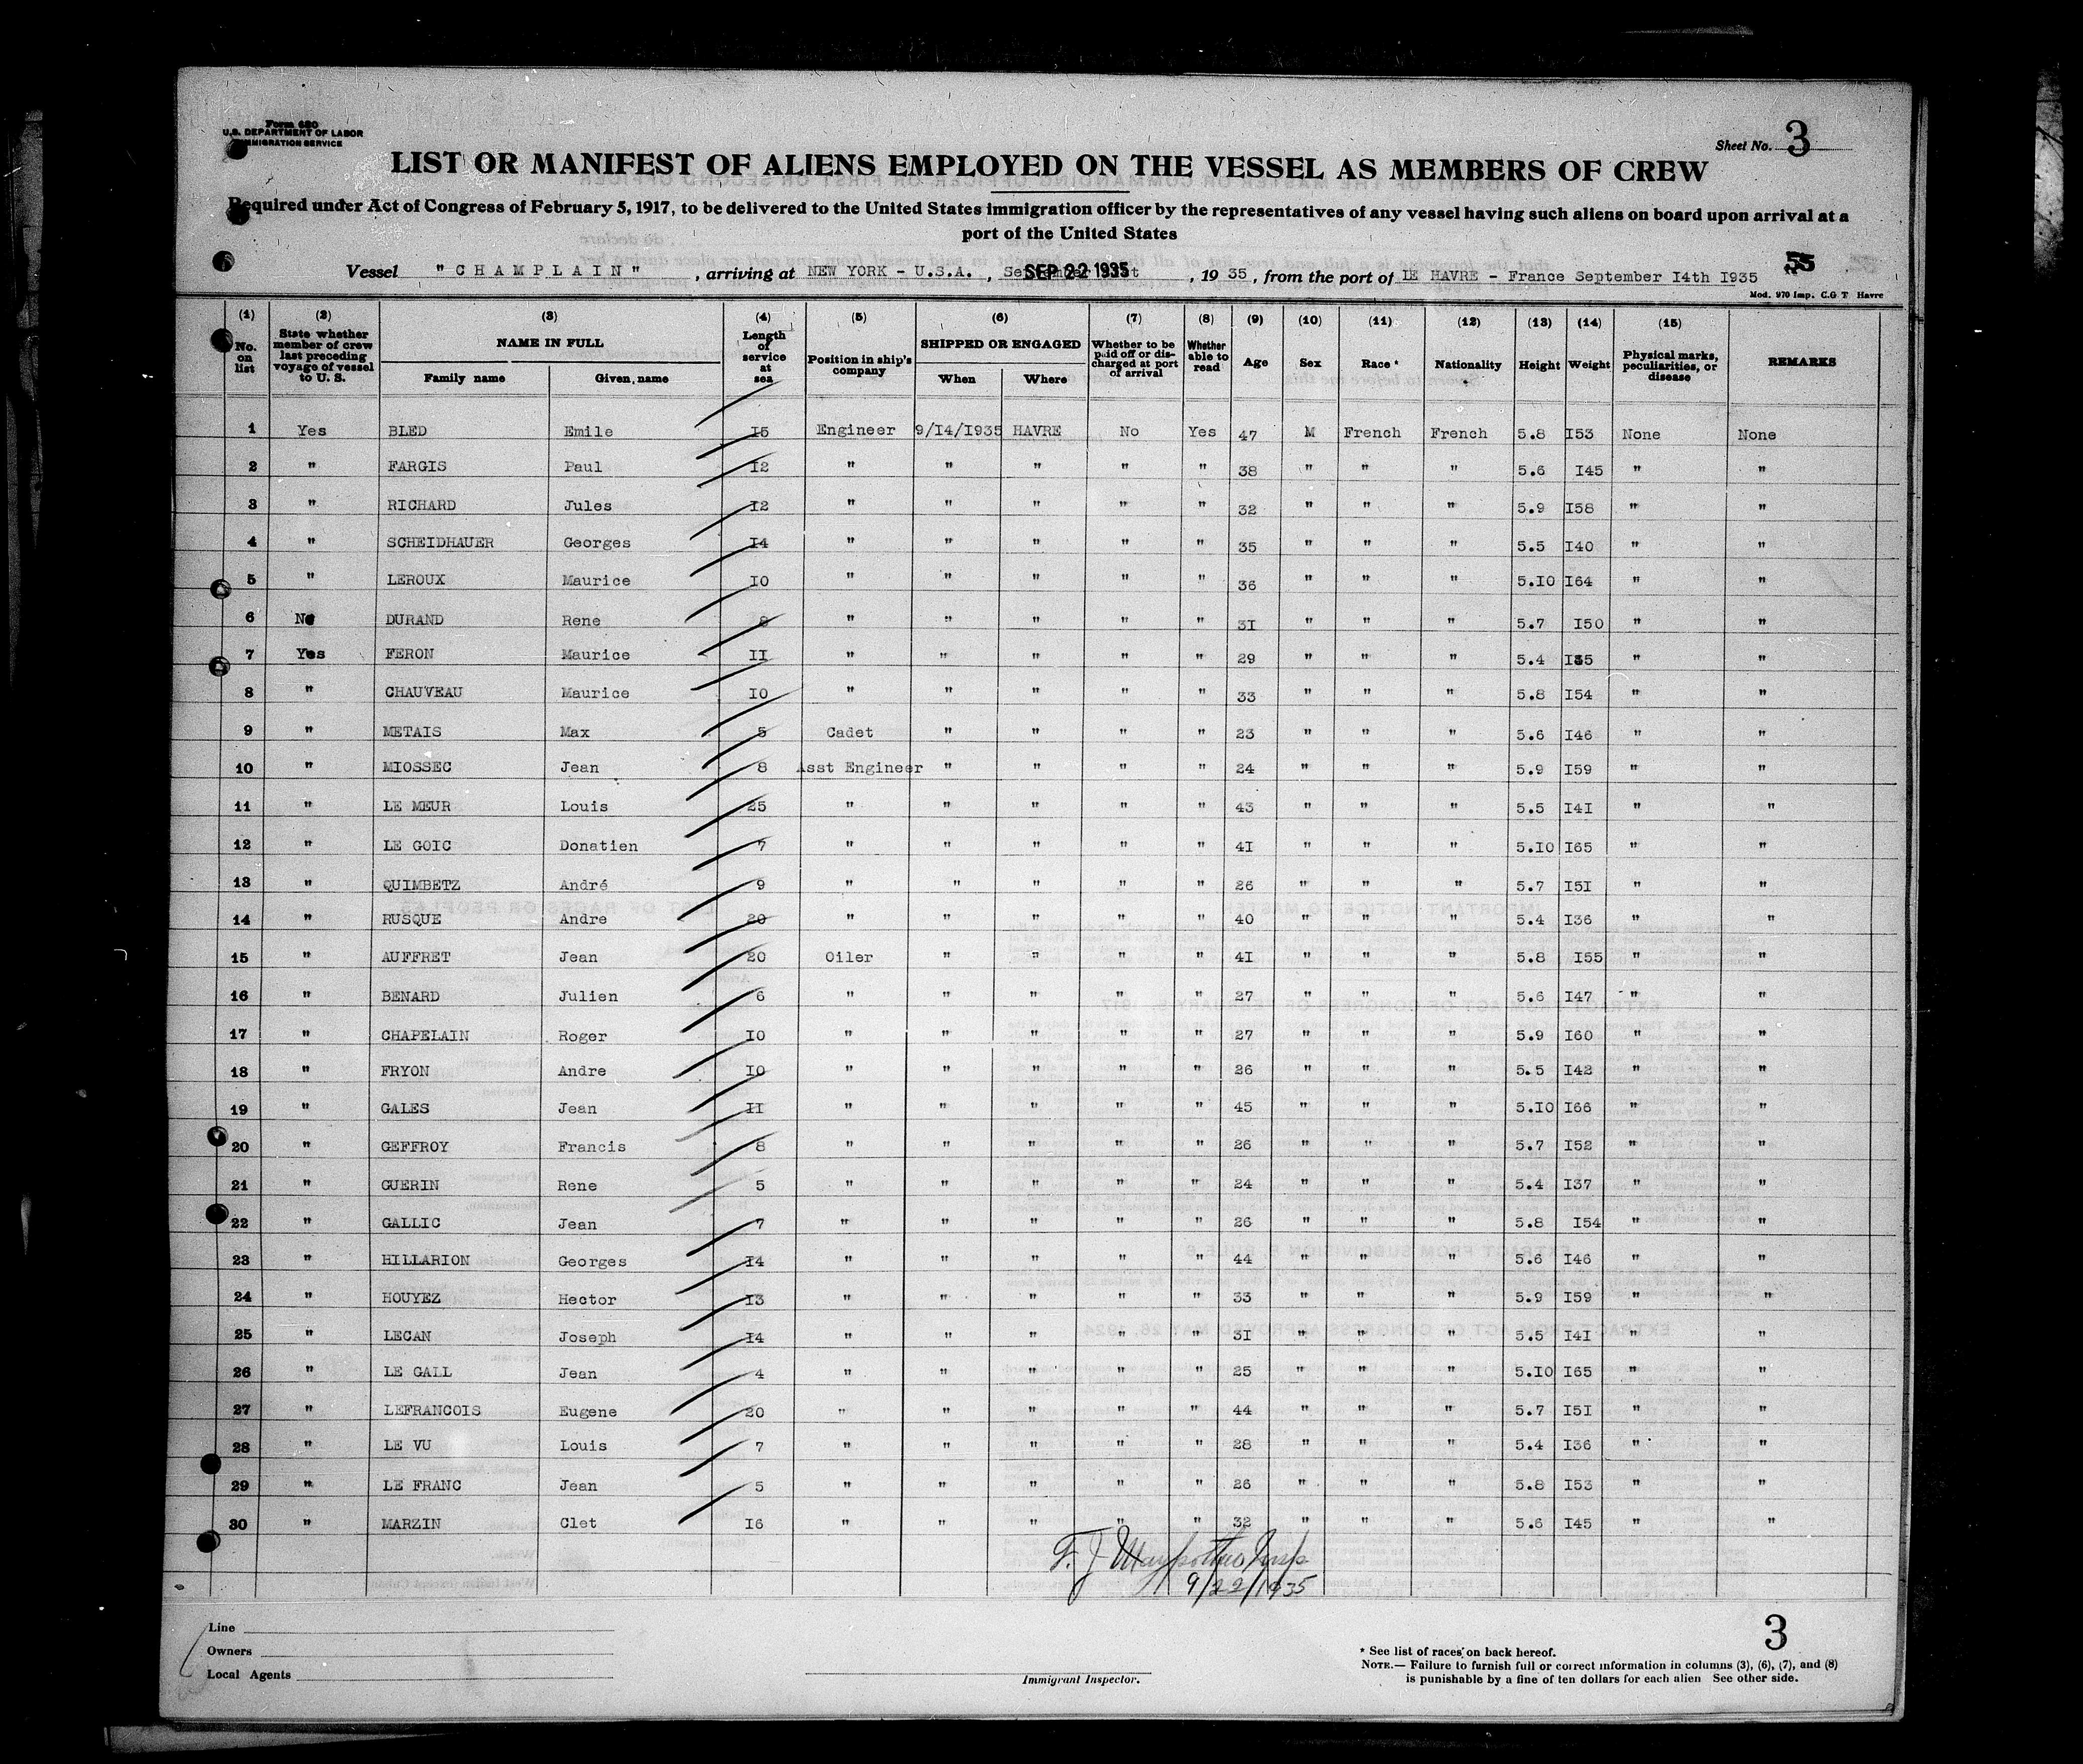 Form 680
U.S. DEPARTMENT OF LABOR
IMMIGRATION SERVICE
Sheet No. 3
LIST OR MANIFEST OF ALIENS EMPLOYED ON THE VESSEL AS MEMBERS OF CREW
Required under Act of Congress of February 5, 1917, to be delivered to the United States immigration officer by the representatives of any vessel having such aliens on board upon arrival at a
port of the United States
Vessel "CHAMPLAIN", arriving at NEW YORK - U.S.A., SEP 22 1935, 19 35, from the port of LE HAVRE - France September I4th I935
55
Mod. 970 Imp. C.G T Havre
(1) (2) (3) (4) (5) (6) (7) (8) (9) (10) (11) (12) (13) (14) (15)
No. on list | State whether member of crew last preceding voyage of vessel to U. S. | NAME IN FULL Family name Given name | Length of service at sea | Position in ship's company | SHIPPED OR ENGAGED When Where | Whether to be paid off or discharged at port of arrival | Whether able to read | Age | Sex | Race * | Nationality | Height | Weight | Physical marks, peculiarities, or disease | REMARKS
1 Yes BLED Emile I5 Engineer 9/I4/I935 HAVRE No Yes 47 M French French 5.8 I53 None None
2 " FARGIS Paul I2 " " " " " 38 " " " 5.6 I45 " "
3 " RICHARD Jules I2 " " " " " 32 " " " 5.9 I58 " "
4 " SCHEIDHAUER Georges I4 " " " " " 35 " " " 5.5 I40 " "
5 " LEROUX Maurice I0 " " " " " 36 " " " 5.I0 I64 " "
6 No DURAND Rene 8 " " " " " 3I " " " 5.7 I50 " "
7 Yes FERON Maurice II " " " " " 29 " " " 5.4 I35 " "
8 " CHAUVEAU Maurice I0 " " " " " 33 " " " 5.8 I54 " "
9 " METAIS Max 5 Cadet " " " " 23 " " " 5.6 I46 " "
10 " MIOSSEC Jean 8 Asst Engineer " " " " 24 " " " 5.9 I59 " "
11 " LE MEUR Louis 25 " " " " " 43 " " " 5.5 I4I " "
12 " LE GOIC Donatien 7 " " " " " 4I " " " 5.I0 I65 " "
13 " QUIMBETZ André 9 " " " " " 26 " " " 5.7 I5I " "
14 " RUSQUE Andre 20 " " " " " 40 " " " 5.4 I36 " "
15 " AUFFRET Jean 20 Oiler " " " " 4I " " " 5.8 I55 " "
16 " BENARD Julien 6 " " " " " 27 " " " 5.6 I47 " "
17 " CHAPELAIN Roger I0 " " " " " 27 " " " 5.9 I60 " "
18 " FRYON Andre I0 " " " " " 26 " " " 5.5 I42 " "
19 " GALES Jean II " " " " " 45 " " " 5.I0 I66 " "
20 " GEFFROY Francis 8 " " " " " 26 " " " 5.7 I52 " "
21 " GUERIN Rene 5 " " " " " 24 " " " 5.4 I37 " "
22 " GALLIC Jean 7 " " " " " 26 " " " 5.8 I54 " "
23 " HILLARION Georges I4 " " " " " 44 " " " 5.6 I46 " "
24 " HOUYEZ Hector I3 " " " " " 33 " " " 5.9 I59 " "
25 " LECAN Joseph I4 " " " " " 3I " " " 5.5 I4I " "
26 " LE GALL Jean 4 " " " " " 25 " " " 5.I0 I65 " "
27 " LEFRANCOIS Eugene 20 " " " " " 44 " " " 5.7 I5I " "
28 " LE VU Louis 7 " " " " " 28 " " " 5.4 I36 " "
29 " LE FRANC Jean 5 " " " " " 26 " " " 5.8 I53 " "
30 " MARZIN Clet I6 " " " " " 32 " " " 5.6 I45 " "
F. J. Insp
9/22/1935
Line
Owners
Local Agents
Immigrant Inspector.
3
* See list of races on back hereof.
NOTE.— Failure to furnish full or correct information in columns (3), (6), (7), and (8)
is punishable by a fine of ten dollars for each alien See other side.